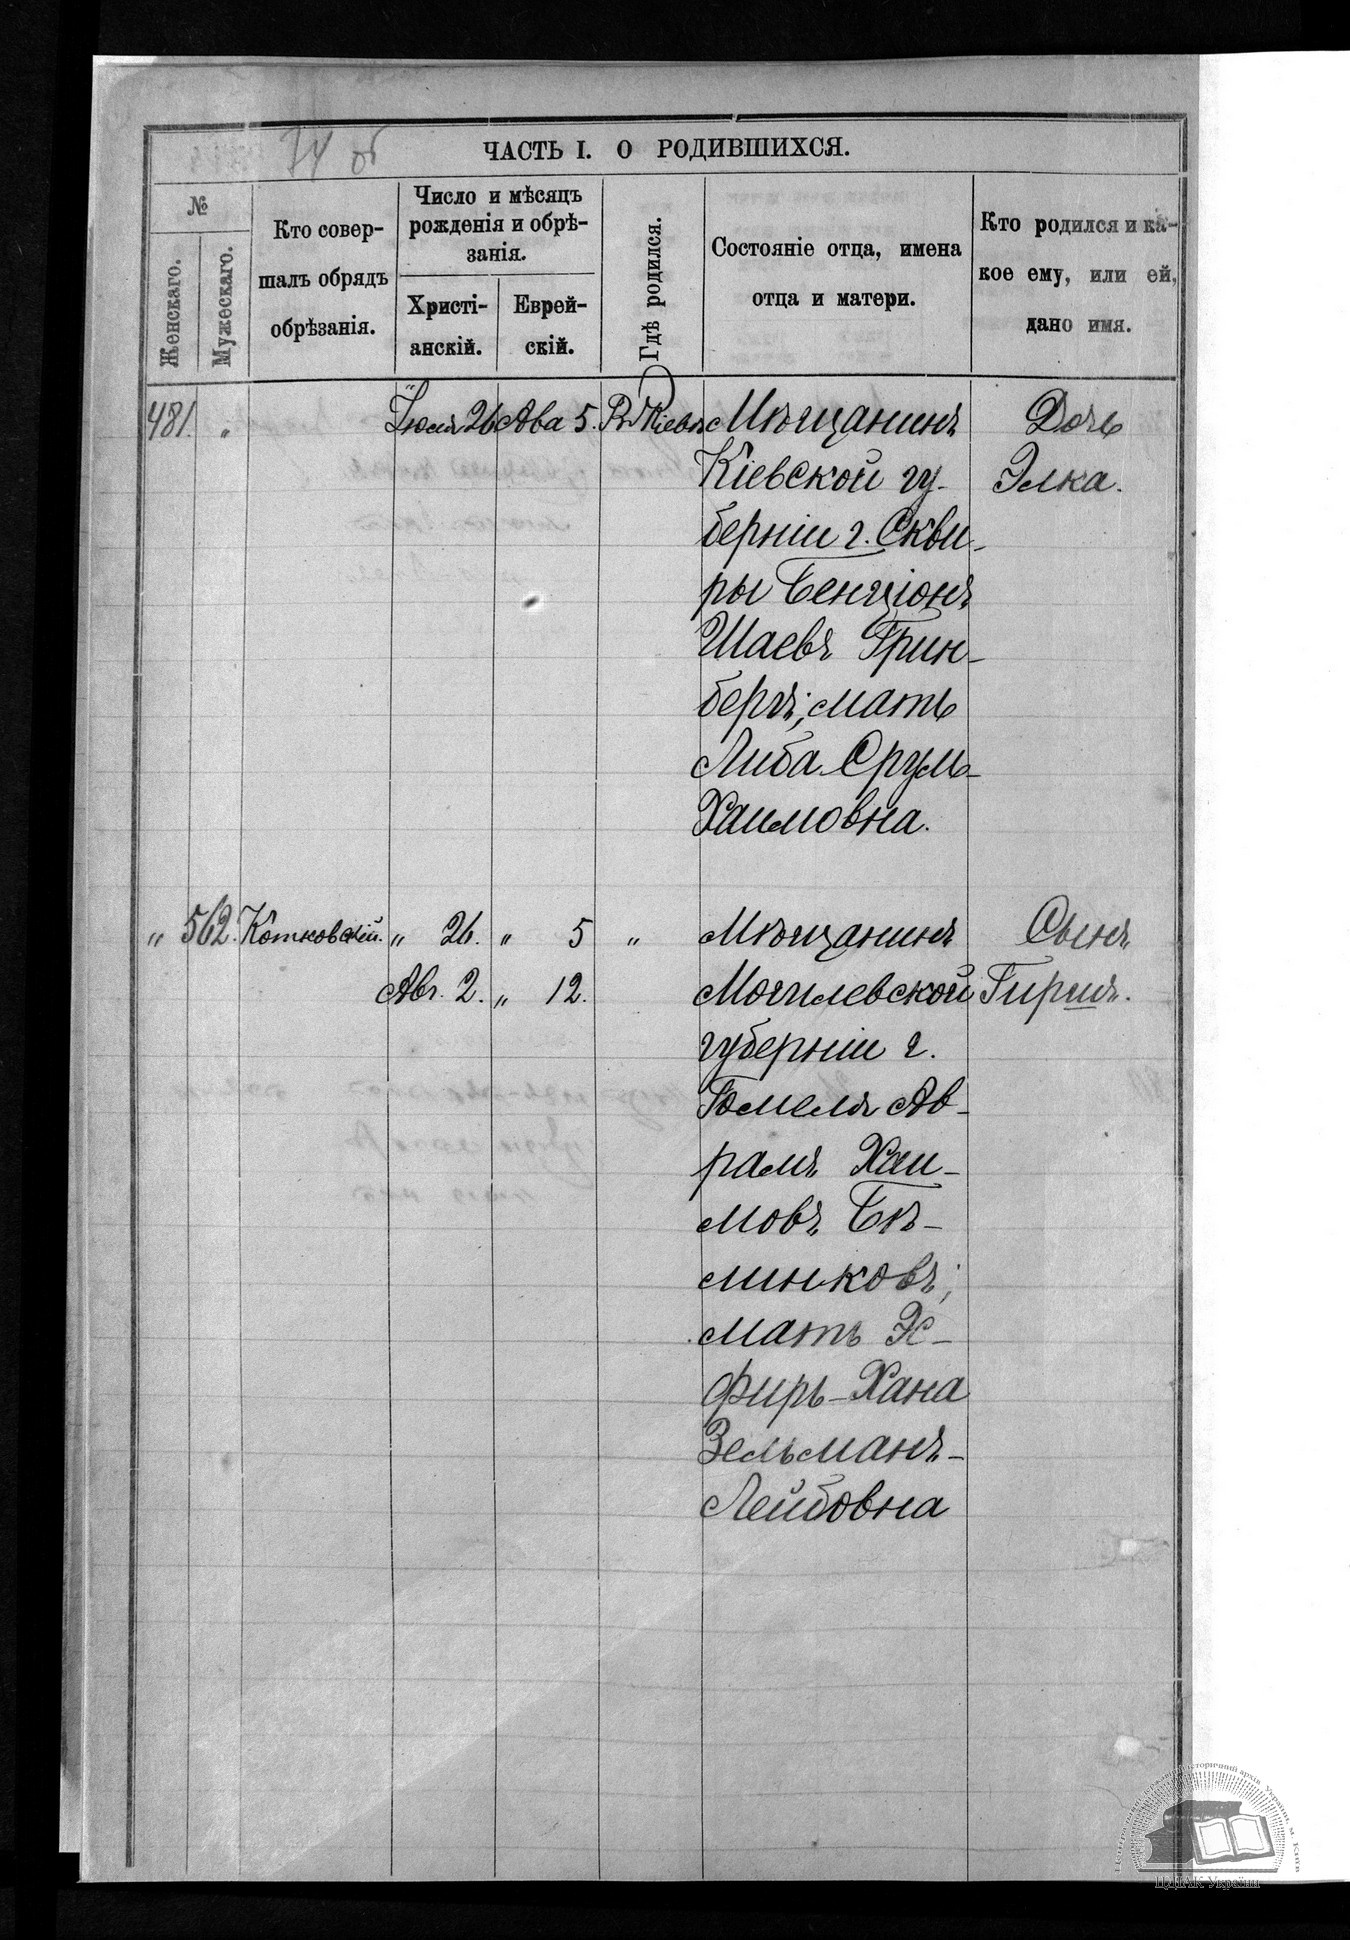 74 об
ЧАСТЬ I. О РОДИВШИХСЯ.
№
Женскаго.
Мужескаго.
Кто совер-
шалъ обрядъ
обрѣзанія.
Число и мѣсяцъ
рожденія и обрѣ-
занія.
Христі-
анскій.
Еврей-
скій.
Гдѣ родился.
Состояніе отца, имена
отца и матери.
Кто родился и ка-
кое ему, или ей,
дано имя.
481. „ Іюля 26 Ава 5. Въ Кіевѣ Мѣщанинъ Дочь
Кіевской гу- Элка.
берніи г. Скви-
ры Бенціонъ
Шаевъ Грин-
бергъ; мать
Либа Сруль-
Хаимовна.
„ 562. Котковскій. „ 26. „ 5 „ Мѣщанинъ Сынъ
Авг. 2. „ 12. Могилевской Гиршъ.
губерніи г.
Гомеля Ав-
рамъ Хаи-
мовъ Бѣ-
линковъ;
мать Эс-
фирь-Хана
Зельманъ-
Лейбовна
ЦДІАК України